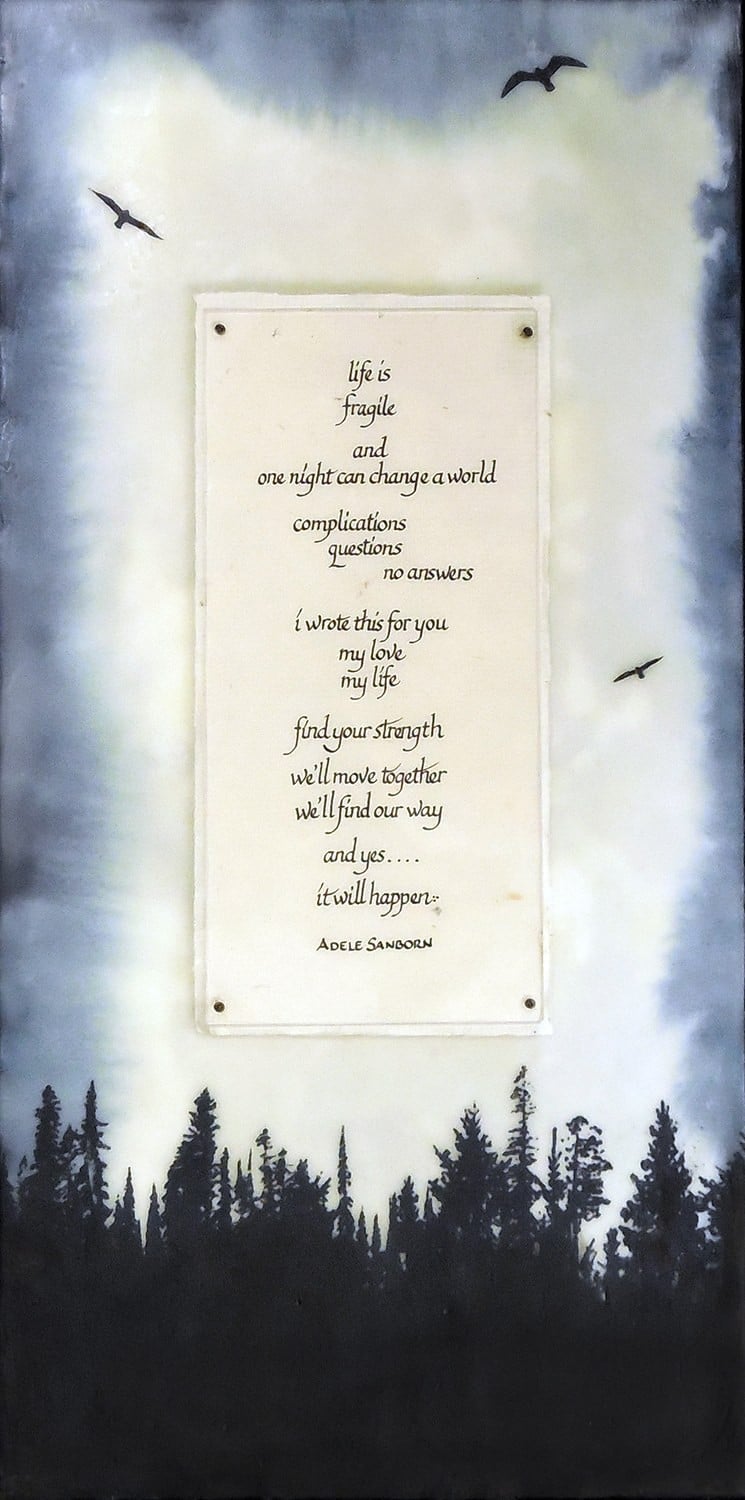 life is
fragile
and
one night can change a world
complications
questions
no answers
i wrote this for you
my love
my life
find your strength
we'll move together
we'll find our way
and yes....
it will happen
ADELE SANBORN